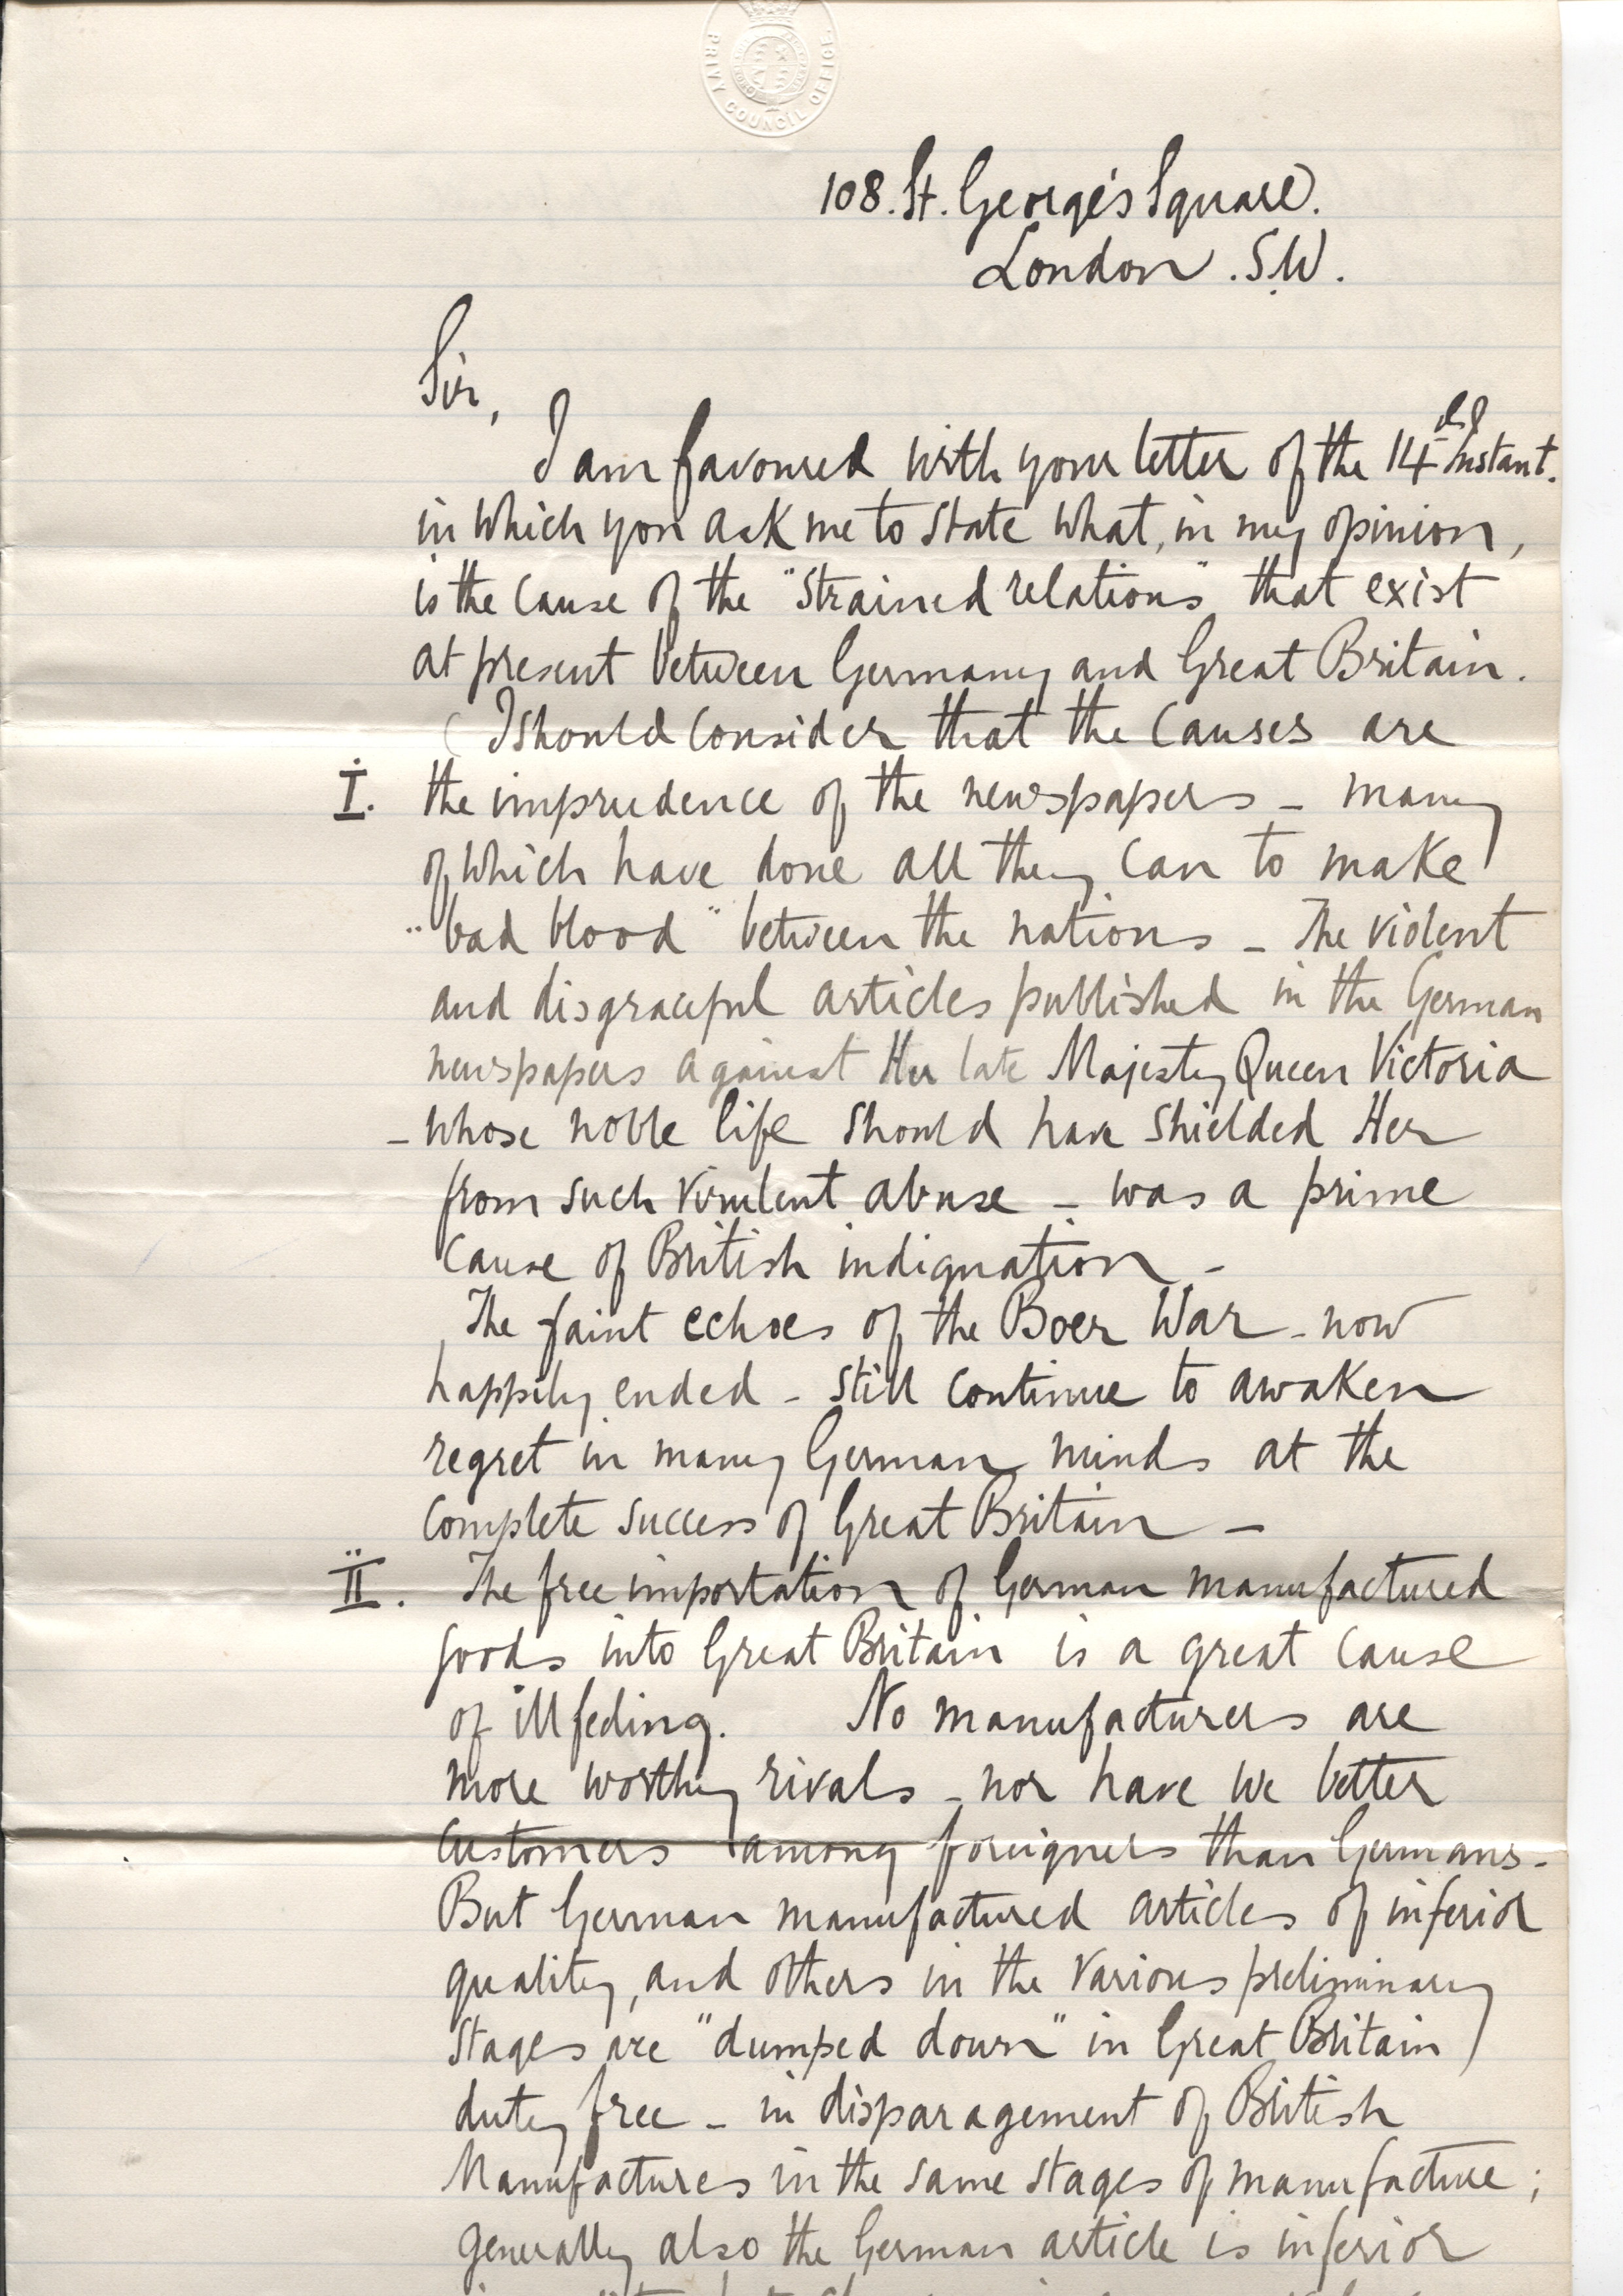 PRIVY COUNCIL OFFICE
108. St. George's Square.
London. S.W.
Sir,
I am favoured with your letter of the 14th Instant.
in which you ask me to state what, in my opinion,
is the cause of the "strained relations" that exist
at present between Germany and Great Britain.
I should consider that the causes are
I. the imprudence of the newspapers - many
of which have done all they can to make
"bad blood" between the nations - The violent
and disgraceful articles published in the German
newspapers against Her late Majesty Queen Victoria
- whose noble life should have shielded Her
from such virulent abuse - was a prime
cause of British indignation -
The faint echoes of the Boer War - now
happily ended - still continue to awaken
regret in many German minds at the
complete success of Great Britain -
II. The free importation of German manufactured
goods into Great Britain is a great cause
of ill feeling. No manufacturers are
more worthy rivals - nor have we better
customers among foreigners than Germans -
But German manufactured articles of inferior
quality, and others in the various preliminary
stages are "dumped down" in Great Britain
duty free - in disparagement of British
Manufactures in the same stages of manufacture;
generally also the German article is inferior